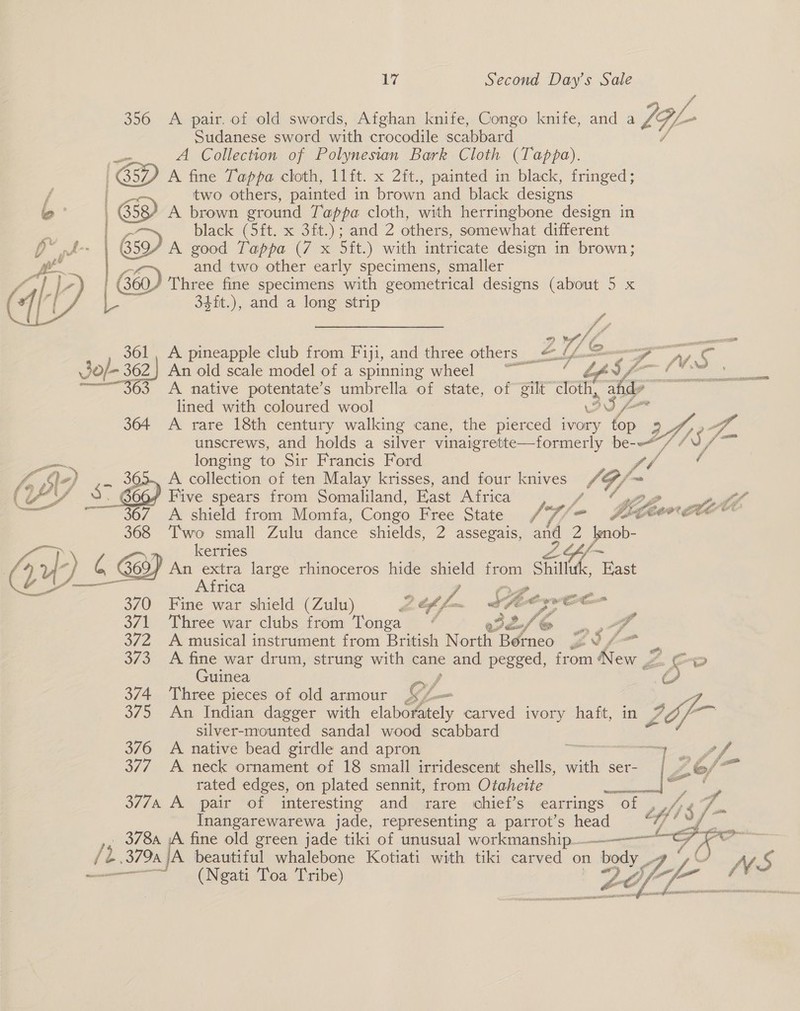 17 Second Day's Sale
356 A pair of old swords, Afghan knife, Congo knife, and a
Sudanese sword with crocodile scabbard
A Collection of Polynesian Bark Cloth (Tappa).
357 A fine Tappa cloth, 11ft. x 2ft., painted in black, fringed;
two others, painted in brown and black designs
358 A brown ground Tappa cloth, with herringbone design in
black (5ft. x 3ft.); and 2 others, somewhat different
359 A good Tappa (7 x 5ft.) with intricate design in brown;
and two other early specimens, smaller
360 Three fine specimens with geometrical designs (about 5 x
3½ft.), and a long strip
361 A pineapple club from Fiji, and three others
30/- 362 An old scale model of a spinning wheel N.S
363 A native potentate's umbrella of state, of gilt cloth, and
lined with coloured wool
364 A rare 18th century walking cane, the pierced ivory top
unscrews, and holds a silver vinaigrette—formerly be-
longing to Sir Francis Ford
365 A collection of ten Malay krisses, and four knives
366 Five spears from Somaliland, East Africa
367 A shield from Momfa, Congo Free State
368 Two small Zulu dance shields, 2 assegais, and 2 knob-
kerries
369 An extra large rhinoceros hide shield from Shilluk, East
Africa
370 Fine war shield (Zulu)
371 Three war clubs from Tonga 32/6
372 A musical instrument from British North Borneo
373 A fine war drum, strung with cane and pegged, from New
Guinea
374 Three pieces of old armour
375 An Indian dagger with elaborately carved ivory haft, in
silver-mounted sandal wood scabbard
376 A native bead girdle and apron
377 A neck ornament of 18 small irridescent shells, with ser-
rated edges, on plated sennit, from Otaheite
377A A pair of interesting and rare chief's earrings of
Inangarewarewa jade, representing a parrot's head
378A A fine old green jade tiki of unusual workmanship
379A A beautiful whalebone Kotiati with tiki carved on body
(Ngati Toa Tribe) NS